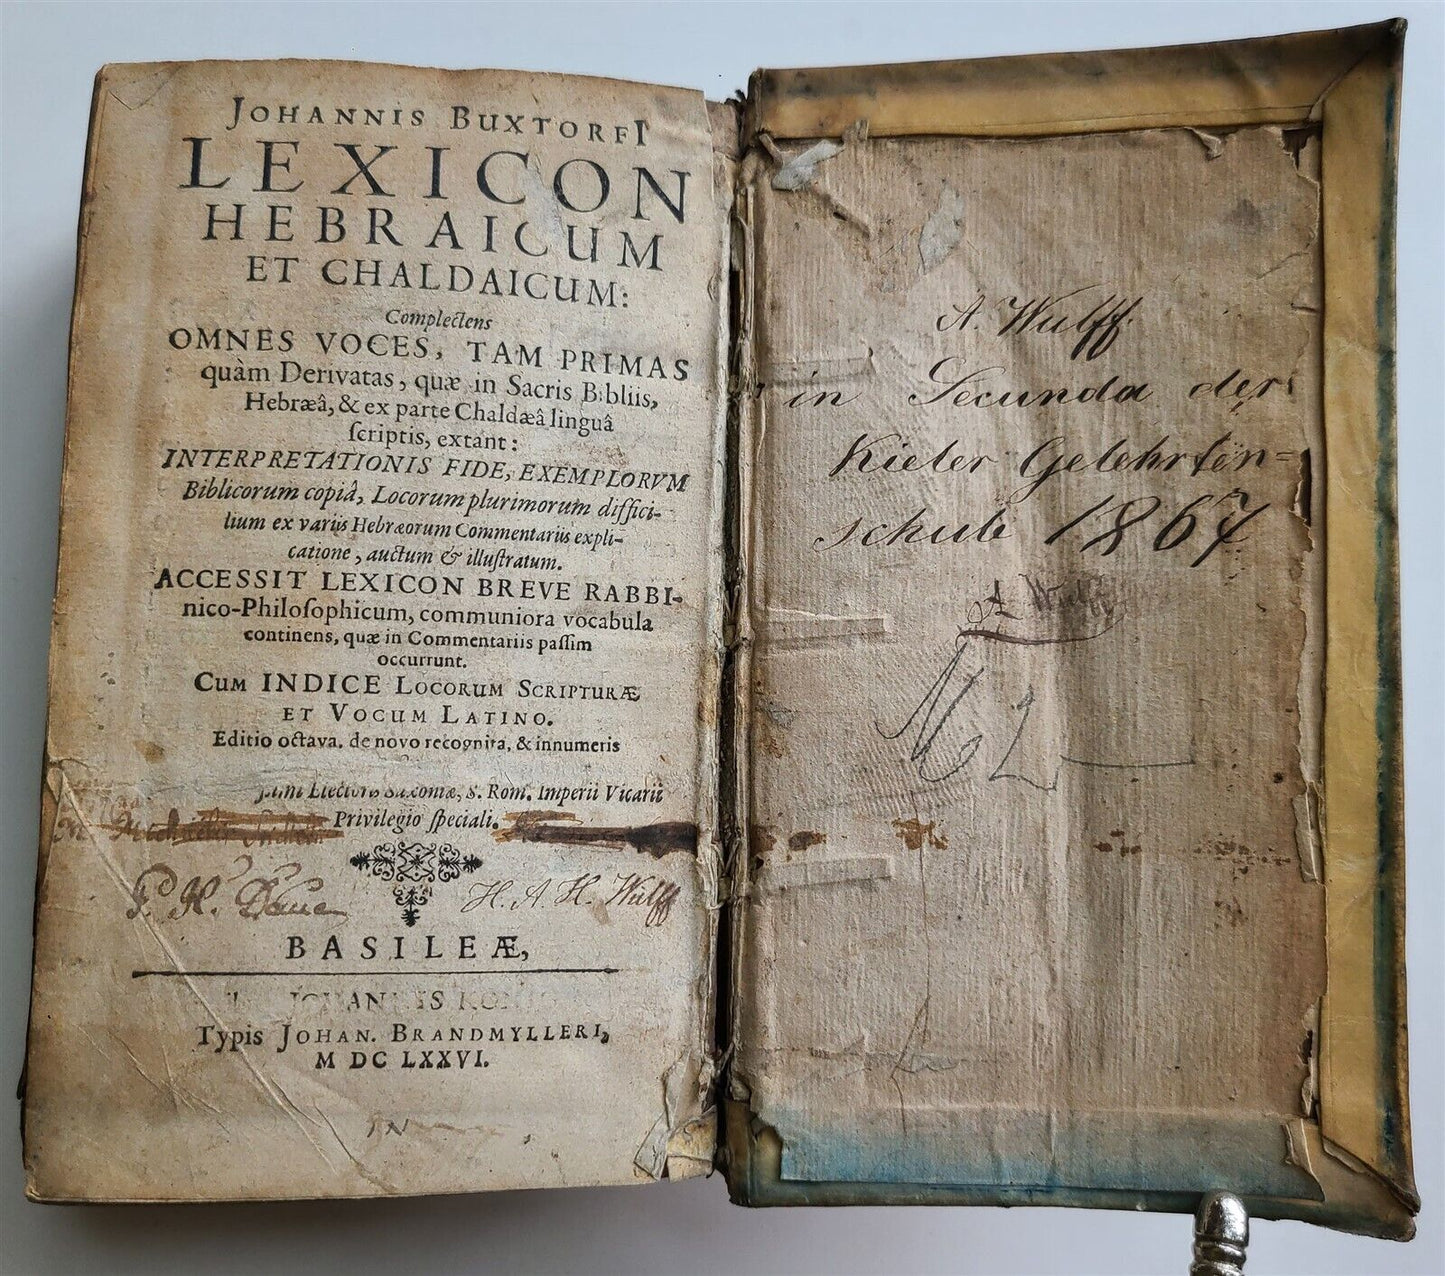 JOHANNIS BUXTORFI
LEXICON
HEBRAICUM
ET CHALDAICUM:
Complectens
OMNES VOCES, TAM PRIMAS
quàm Derivatas, quæ in Sacris Bibliis,
Hebræâ, & ex parte Chaldæâ linguâ
ſcriptis, extant:
INTERPRETATIONIS FIDE, EXEMPLORVM
Biblicorum copiâ, Locorum plurimorum diffici-
lium ex variis Hebræorum Commentariis expli-
catione, auctum & illuſtratum.
ACCESSIT LEXICON BREVE RABBI-
nico-Philoſophicum, communiora vocabula
continens, quæ in Commentariis paſſim
occurrunt.
CUM INDICE LOCORUM SCRIPTURÆ
ET VOCUM LATINO.
Editio octava, de novo recognita, & innumeris
Electoris Saxoniæ, S. Rom. Imperii Vicarii
Privilegio ſpeciali.
H. A. H. Wulff
BASILEÆ,
JOHANNIS
Typis JOHAN. BRANDMYLLERI,
M DC LXXVI.
A. Wulff.
in Secunda der
Kieler Gelehrten=
schule 1867
A Wulff